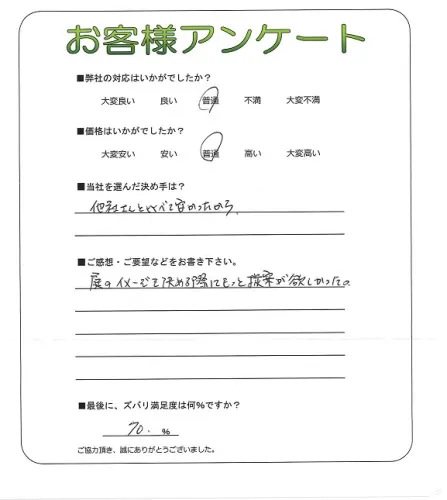 お客様アンケート
■弊社の対応はいかがでしたか？
大変良い 良い 普通 不満 大変不満
■価格はいかがでしたか？
大変安い 安い 普通 高い 大変高い
■当社を選んだ決め手は？
他社さんと比べて安かったから、
■ご感想・ご要望などをお書き下さい。
庭のイメージを決める際にもっと提案が欲しかった。
■最後に、ズバリ満足度は何％ですか？
70. ％
ご協力頂き、誠にありがとうございました。